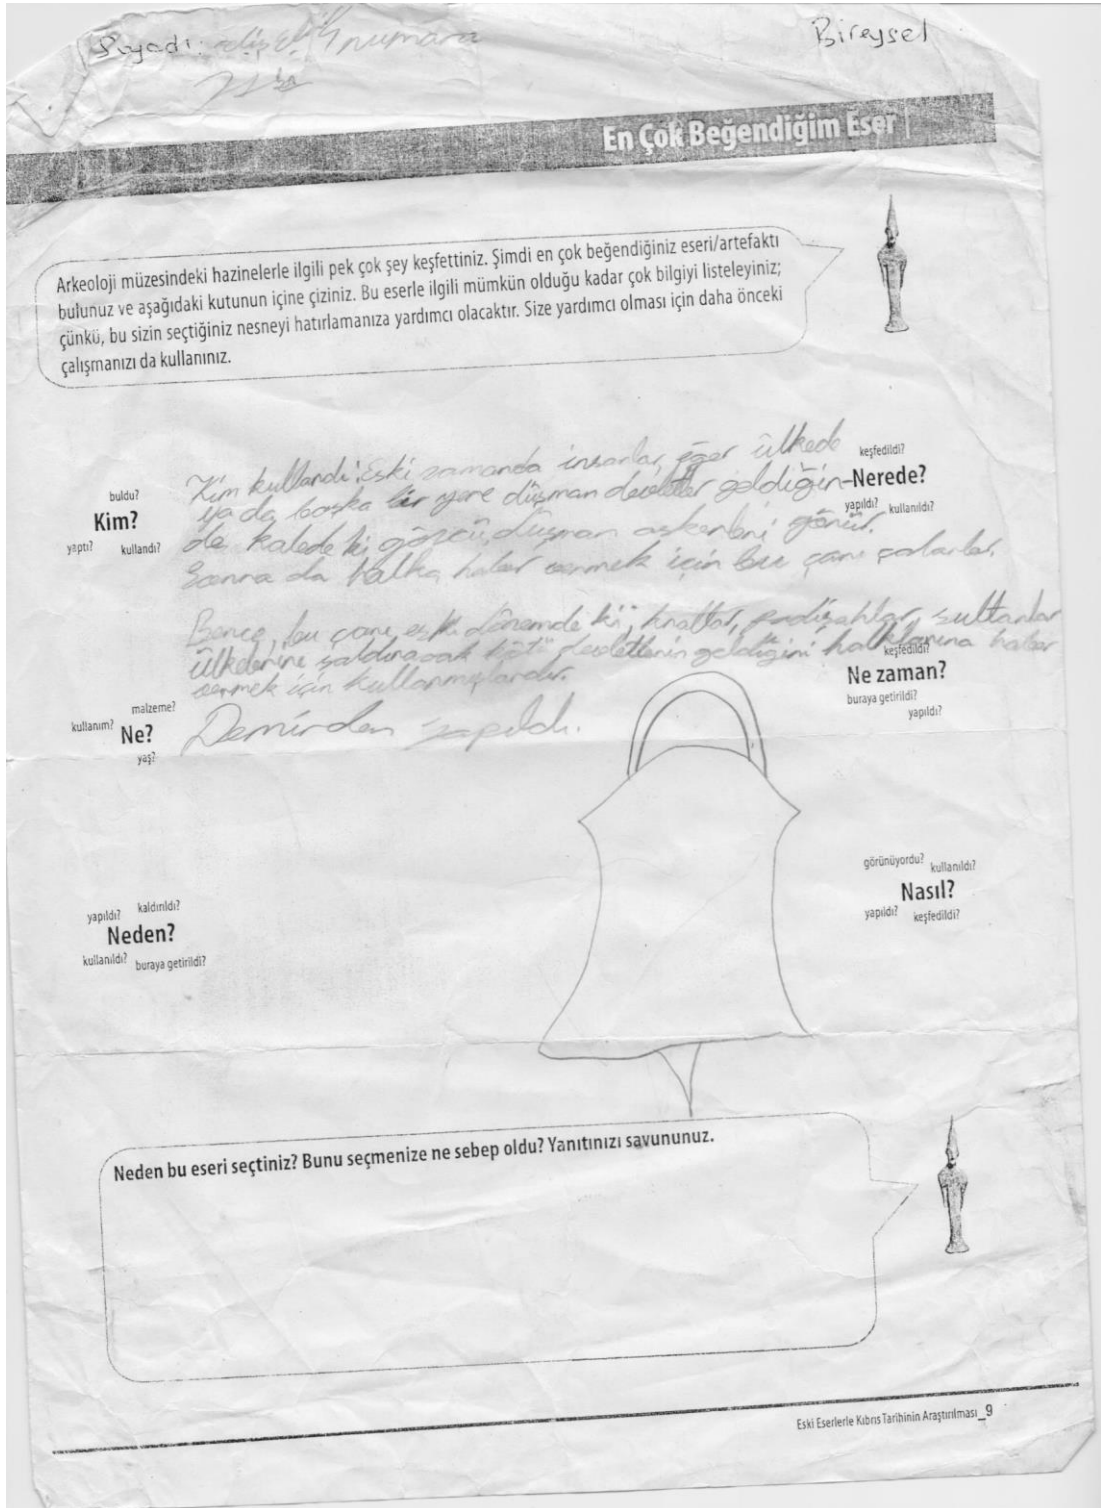 Soyadı: numara
Bireysel
En Çok Beğendiğim Eser
Arkeoloji müzesindeki hazinelerle ilgili pek çok şey keşfettiniz. Şimdi en çok beğendiğiniz eseri/artefaktı
bulunuz ve aşağıdaki kutunun içine çiziniz. Bu eserle ilgili mümkün olduğu kadar çok bilgiyi listeleyiniz;
çünkü, bu sizin seçtiğiniz nesneyi hatırlamanıza yardımcı olacaktır. Size yardımcı olması için daha önceki
çalışmanızı da kullanınız.
buldu?
Kim?
yaptı? kullandı?
Kim kullandı: Eski zamanda insanlar, eğer ülkede
ya da başka bir yere düşman devletler geldiğin-
de kaledeki gözcü, düşman askerleni görür.
Sonra da halka haber vermek için bu çanı çalarlar.
keşfedildi?
Nerede?
yapıldı? kullanıldı?
Bence, bu çanı, eski dönemde ki; krallar, padişahlar, sultanlar
ülkelerine saldıracak kötü devletlerin geldiğini halklarına haber
vermek için kullanmışlardır.
keşfedildi?
Ne zaman?
buraya getirildi?
yapıldı?
malzeme?
kullanım? Ne?
yaş?
Demirden yapıldı.
görünüyordu? kullanıldı?
Nasıl?
yapıldı? keşfedildi?
yapıldı? kaldırıldı?
Neden?
kullanıldı? buraya getirildi?
Neden bu eseri seçtiniz? Bunu seçmenize ne sebep oldu? Yanıtınızı savununuz.
Eski Eserlerle Kıbrıs Tarihinin Araştırılması_9